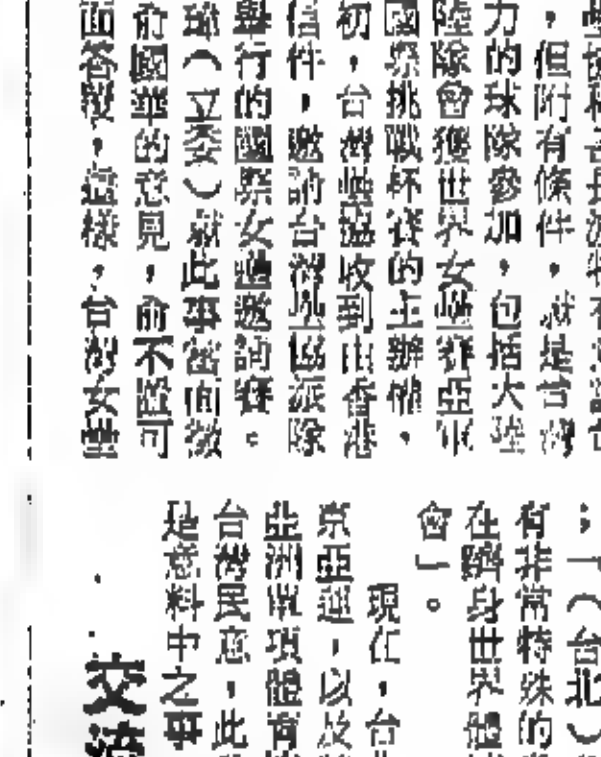 ，但附有條件，就是台灣
力的球隊參加，包括大陸
陸隊曾獲世界女壘賽亞軍
國際挑戰杯賽的主辦權。
初，台灣壘協收到由香港
信件，邀請台灣壘協派隊
舉行的國際女壘邀請賽。
（立委）就此事當面徵
俞國華的意見，俞不置可
面答覆，這樣，台灣女壘
；一（台北）
有非常特殊的
在躋身世界體
會」。
現在，台
京亞運，以及
亞洲單項體育
台灣民意，此
是意料中之事
交流